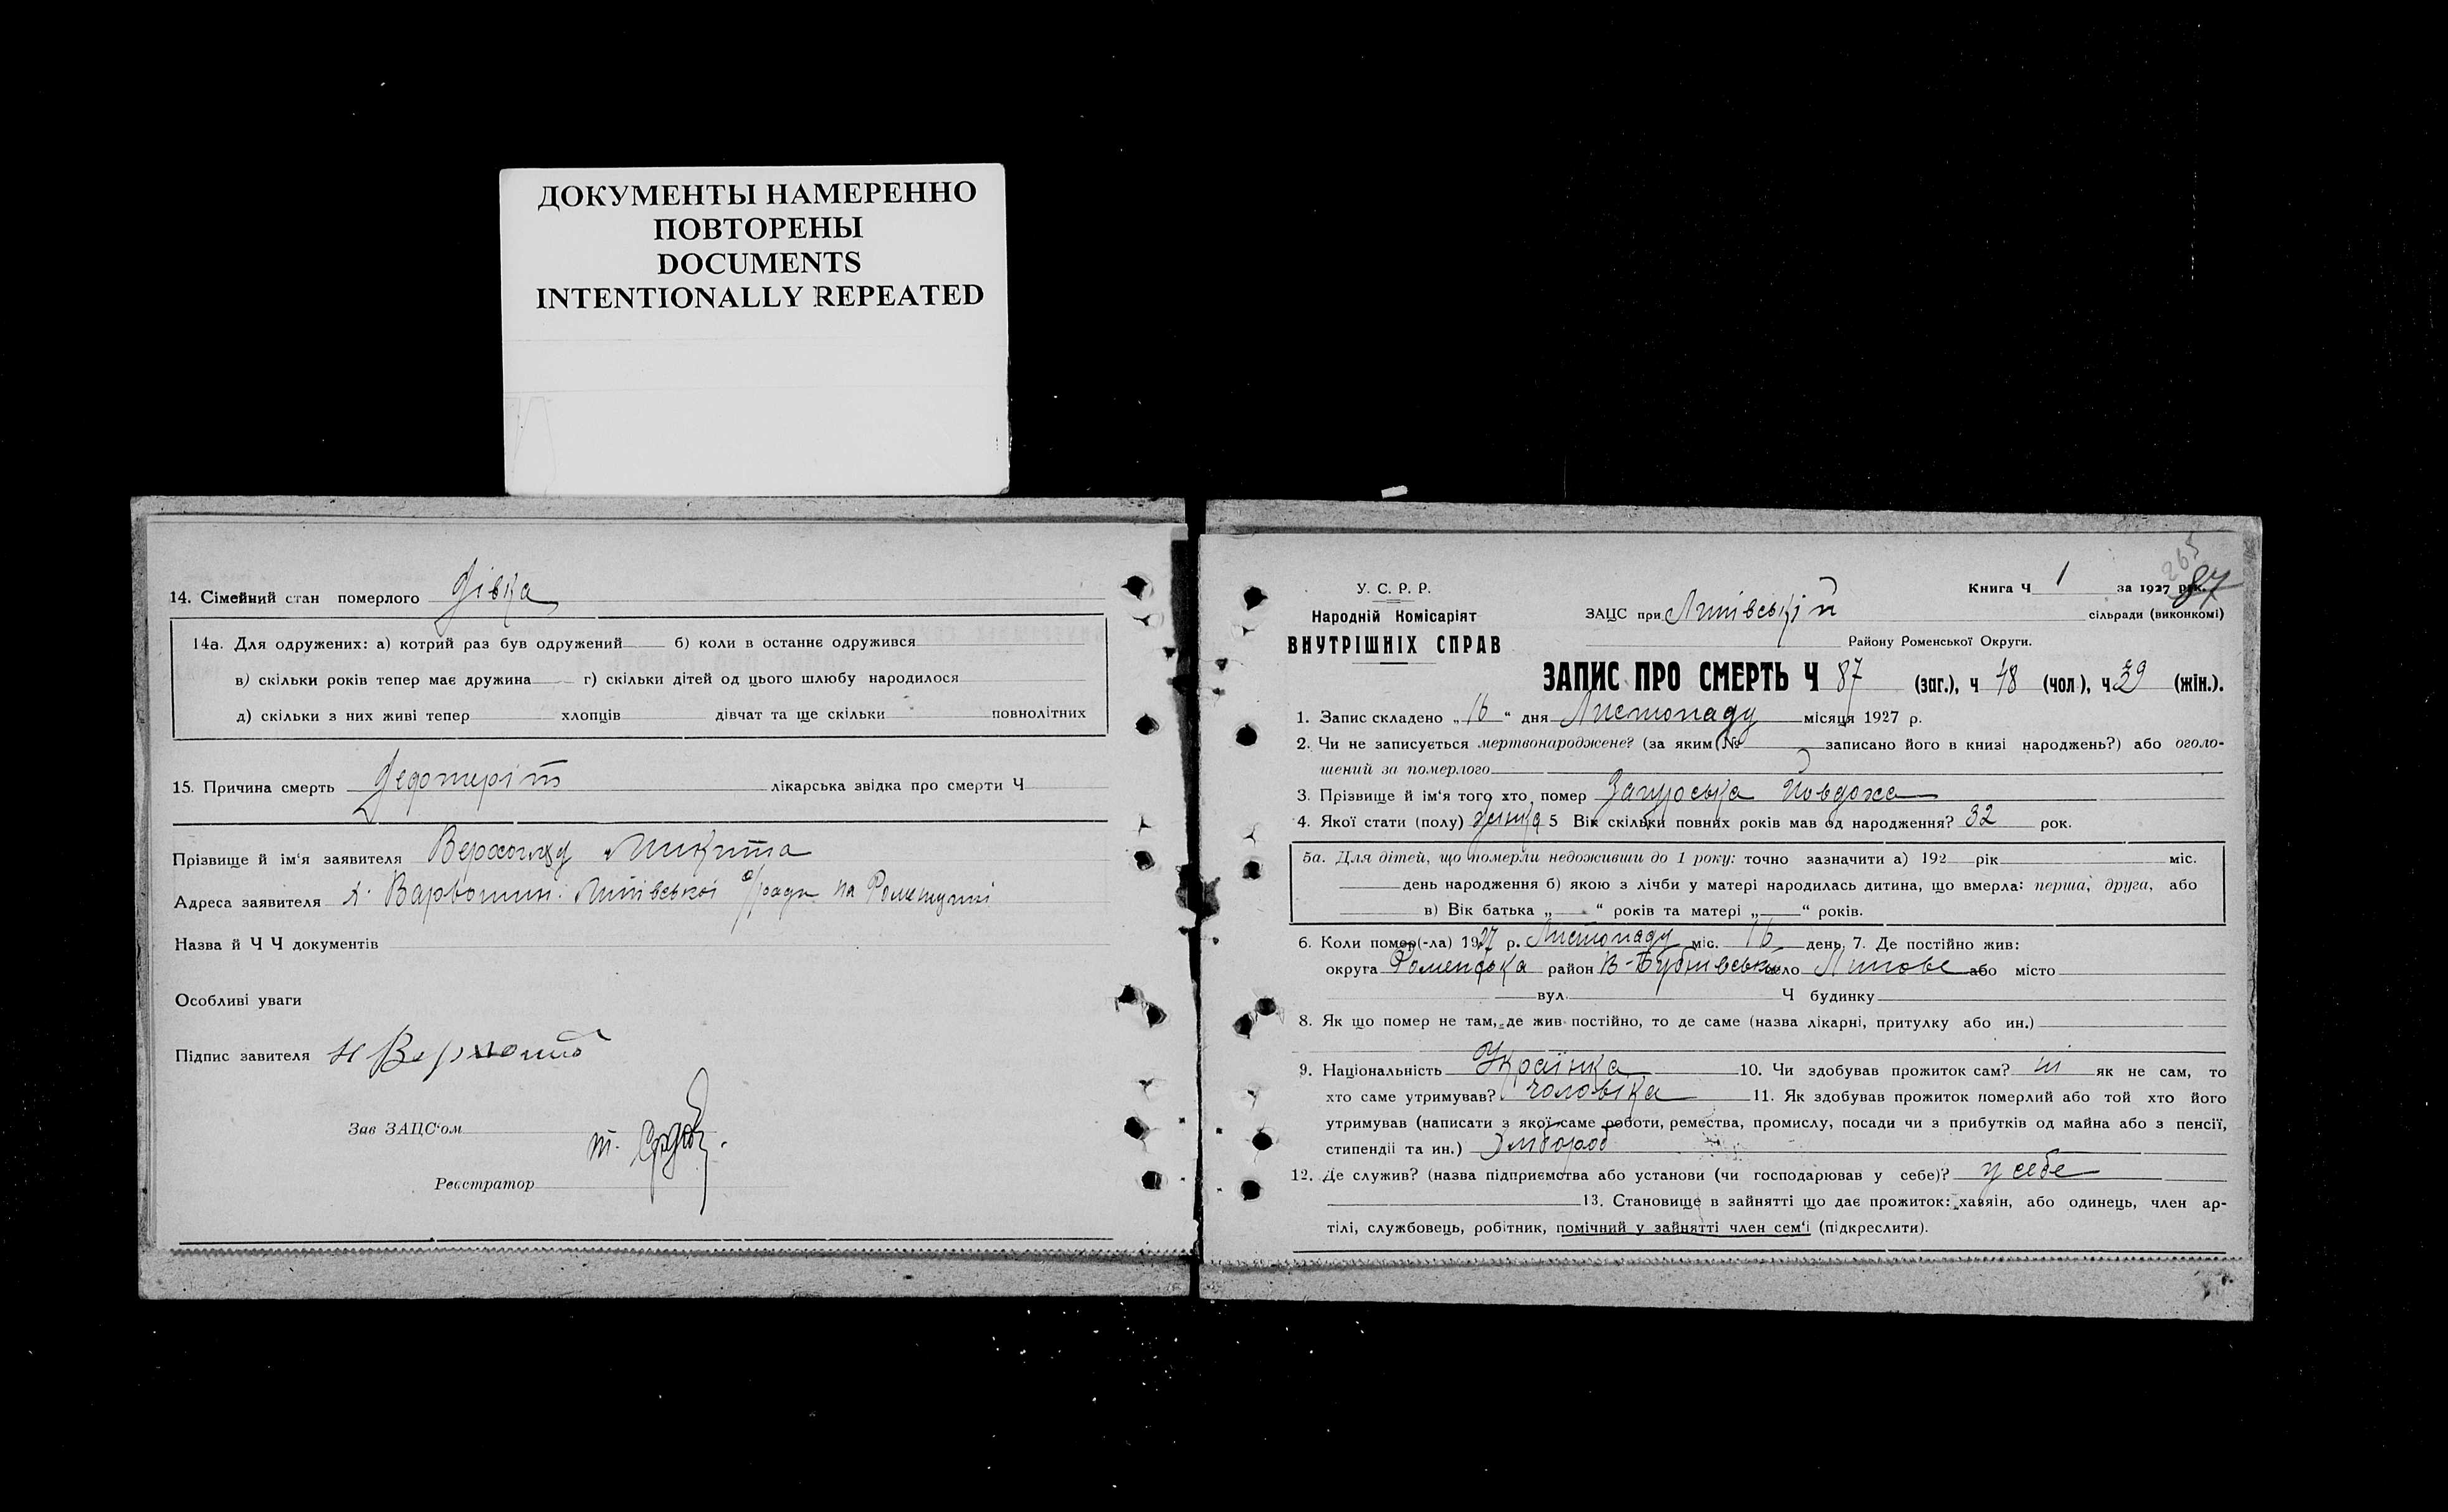 ДОКУМЕНТЫ НАМЕРЕННО
ПОВТОРЕНЫ
DOCUMENTS
INTENTIONALLY REPEATED
14. Сімейний стан померлого дівка
14а. Для одружених: а) котрий раз був одружений б) коли в останнє одружився
в) скільки років тепер має дружина г) скільки дітей од цього шлюбу народилося
д) скільки з них живі тепер хлопців дівчат та ще скільки повнолітних
15. Причина смерть лікарська звідка про смерти Ч
Прізвище й ім'я заявителя Верхогляд Микита
Адреса заявителя х. Липівської с/ради на
Назва й Ч Ч документів
Особливі уваги
Підпис завителя
Зав ЗАЦС'ом
Реєстратор
265
У. С. Р. Р.
Книга Ч 1 за 1927 рік. 87
Народній Комісаріят
ЗАЦС при Липівській сільради (виконкомі)
ВНУТРІШНІХ СПРАВ
Району Роменської Округи.
ЗАПИС ПРО СМЕРТЬ Ч 87 (заг.), ч 48 (чол), ч 39 (жін.).
1. Запис складено „16" дня Листопаду місяця 1927 р.
2. Чи не записується мертвонароджене? (за яким № записано його в книзі народжень?) або оголо-
шений за померлого
3. Прізвище й ім'я того хто помер Явдоха
4. Якої стати (полу) жінка 5 Вік скільки повних років мав од народження? 32 рок.
5а. Для дітей, що померли недоживши до 1 року: точно зазначити а) 192 рік міс.
день народження б) якою з лічби у матері народилась дитина, що вмерла: перша, друга, або
в) Вік батька „ " років та матері „ " років.
6. Коли помер(-ла) 1927 р. Листопаду міс. 16 день. 7. Де постійно жив:
округа Роменська район В-Бубнівськ село Липове або місто
вул. Ч будинку
8. Як що помер не там, де жив постійно, то де саме (назва лікарні, притулку або ин.)
9. Національність Українка 10. Чи здобував прожиток сам? ні як не сам, то
хто саме утримував? чоловіка 11. Як здобував прожиток померлий або той хто його
утримував (написати з якої саме роботи, ремества, промислу, посади чи з прибутків од майна або з пенсії,
стипендії та ин.) Хлібороб
12. Де служив? (назва підприємства або установи (чи господарював у себе)? у себе
13. Становище в зайнятті що дає прожиток: хазяїн, або одинець, член ар-
тілі, службовець, робітник, помічний у зайнятті член сем'ї (підкреслити).